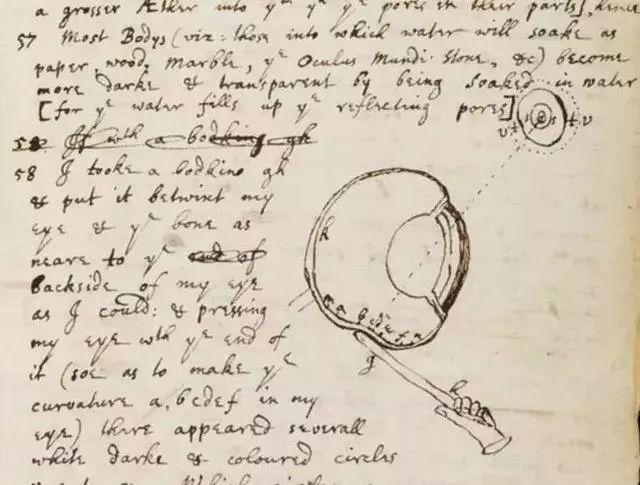 a grosser Æther into yᵉ yᵉ yᵉ pores in their parts], hence
57 Most Bodys (viz: those into which water will soake as
paper, wood, Marble, yᵉ Oculus Mundi Stone, &c) become
more darke & transparent by being soaked in water
[for yᵉ water fills up yᵉ reflecting pores]
58 If wth a bodking gh
58 I tooke a bodkine gh
& put it betwixt my
eye & yᵉ bone as
neare to yᵉ end of
backside of my eye
as I could: & pressing
my eye wth yᵉ end of
it (soe as to make yᵉ
curvature a, bcdef in my
eye) there appeared severall
white darke & coloured circles
s t v
k
a b c d e f
g
h